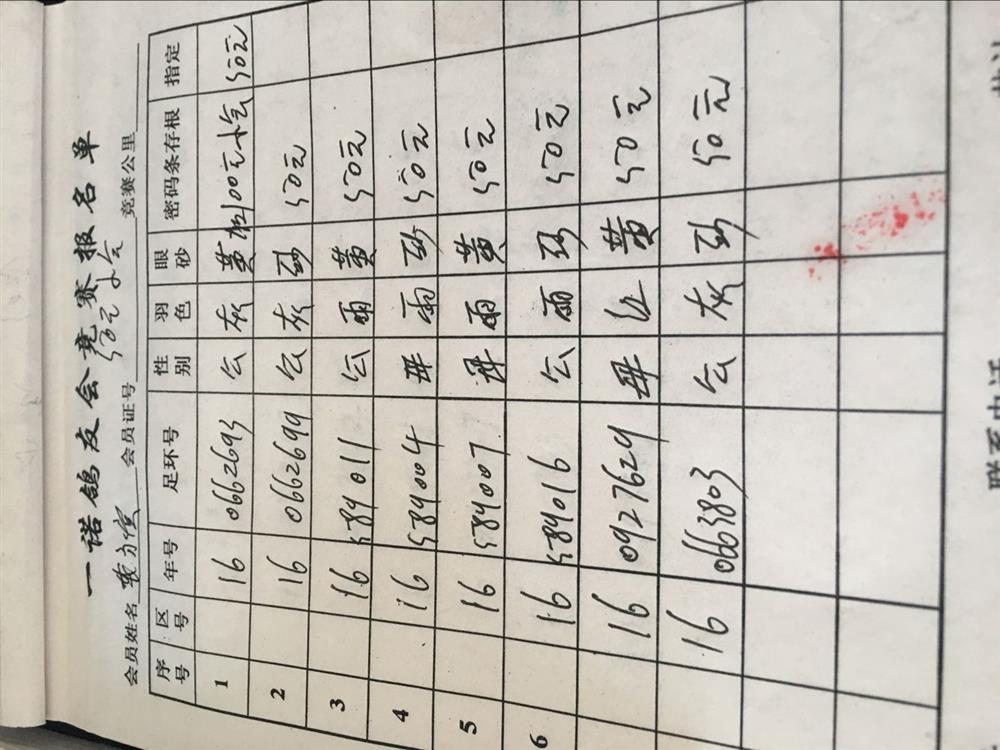 一诺鸽友会竞赛报名单
会员姓名 会员证号 50元小会 竞赛公里
序号 区号 年号 足环号 性别 羽色 眼砂 密码条存根 指定
1 16 0662693 公 灰 黄 100元小会 50元
2 16 0662699 公 灰 砂 50元
3 16 589011 公 雨 黄 50元
4 16 589004 母 雨 砂 50元
5 16 589007 母 雨 黄 50元
6 16 589016 公 雨 砂 50元
16 0927629 母 红 黄 50元
16 0663803 公 灰 砂 50元
联系电话